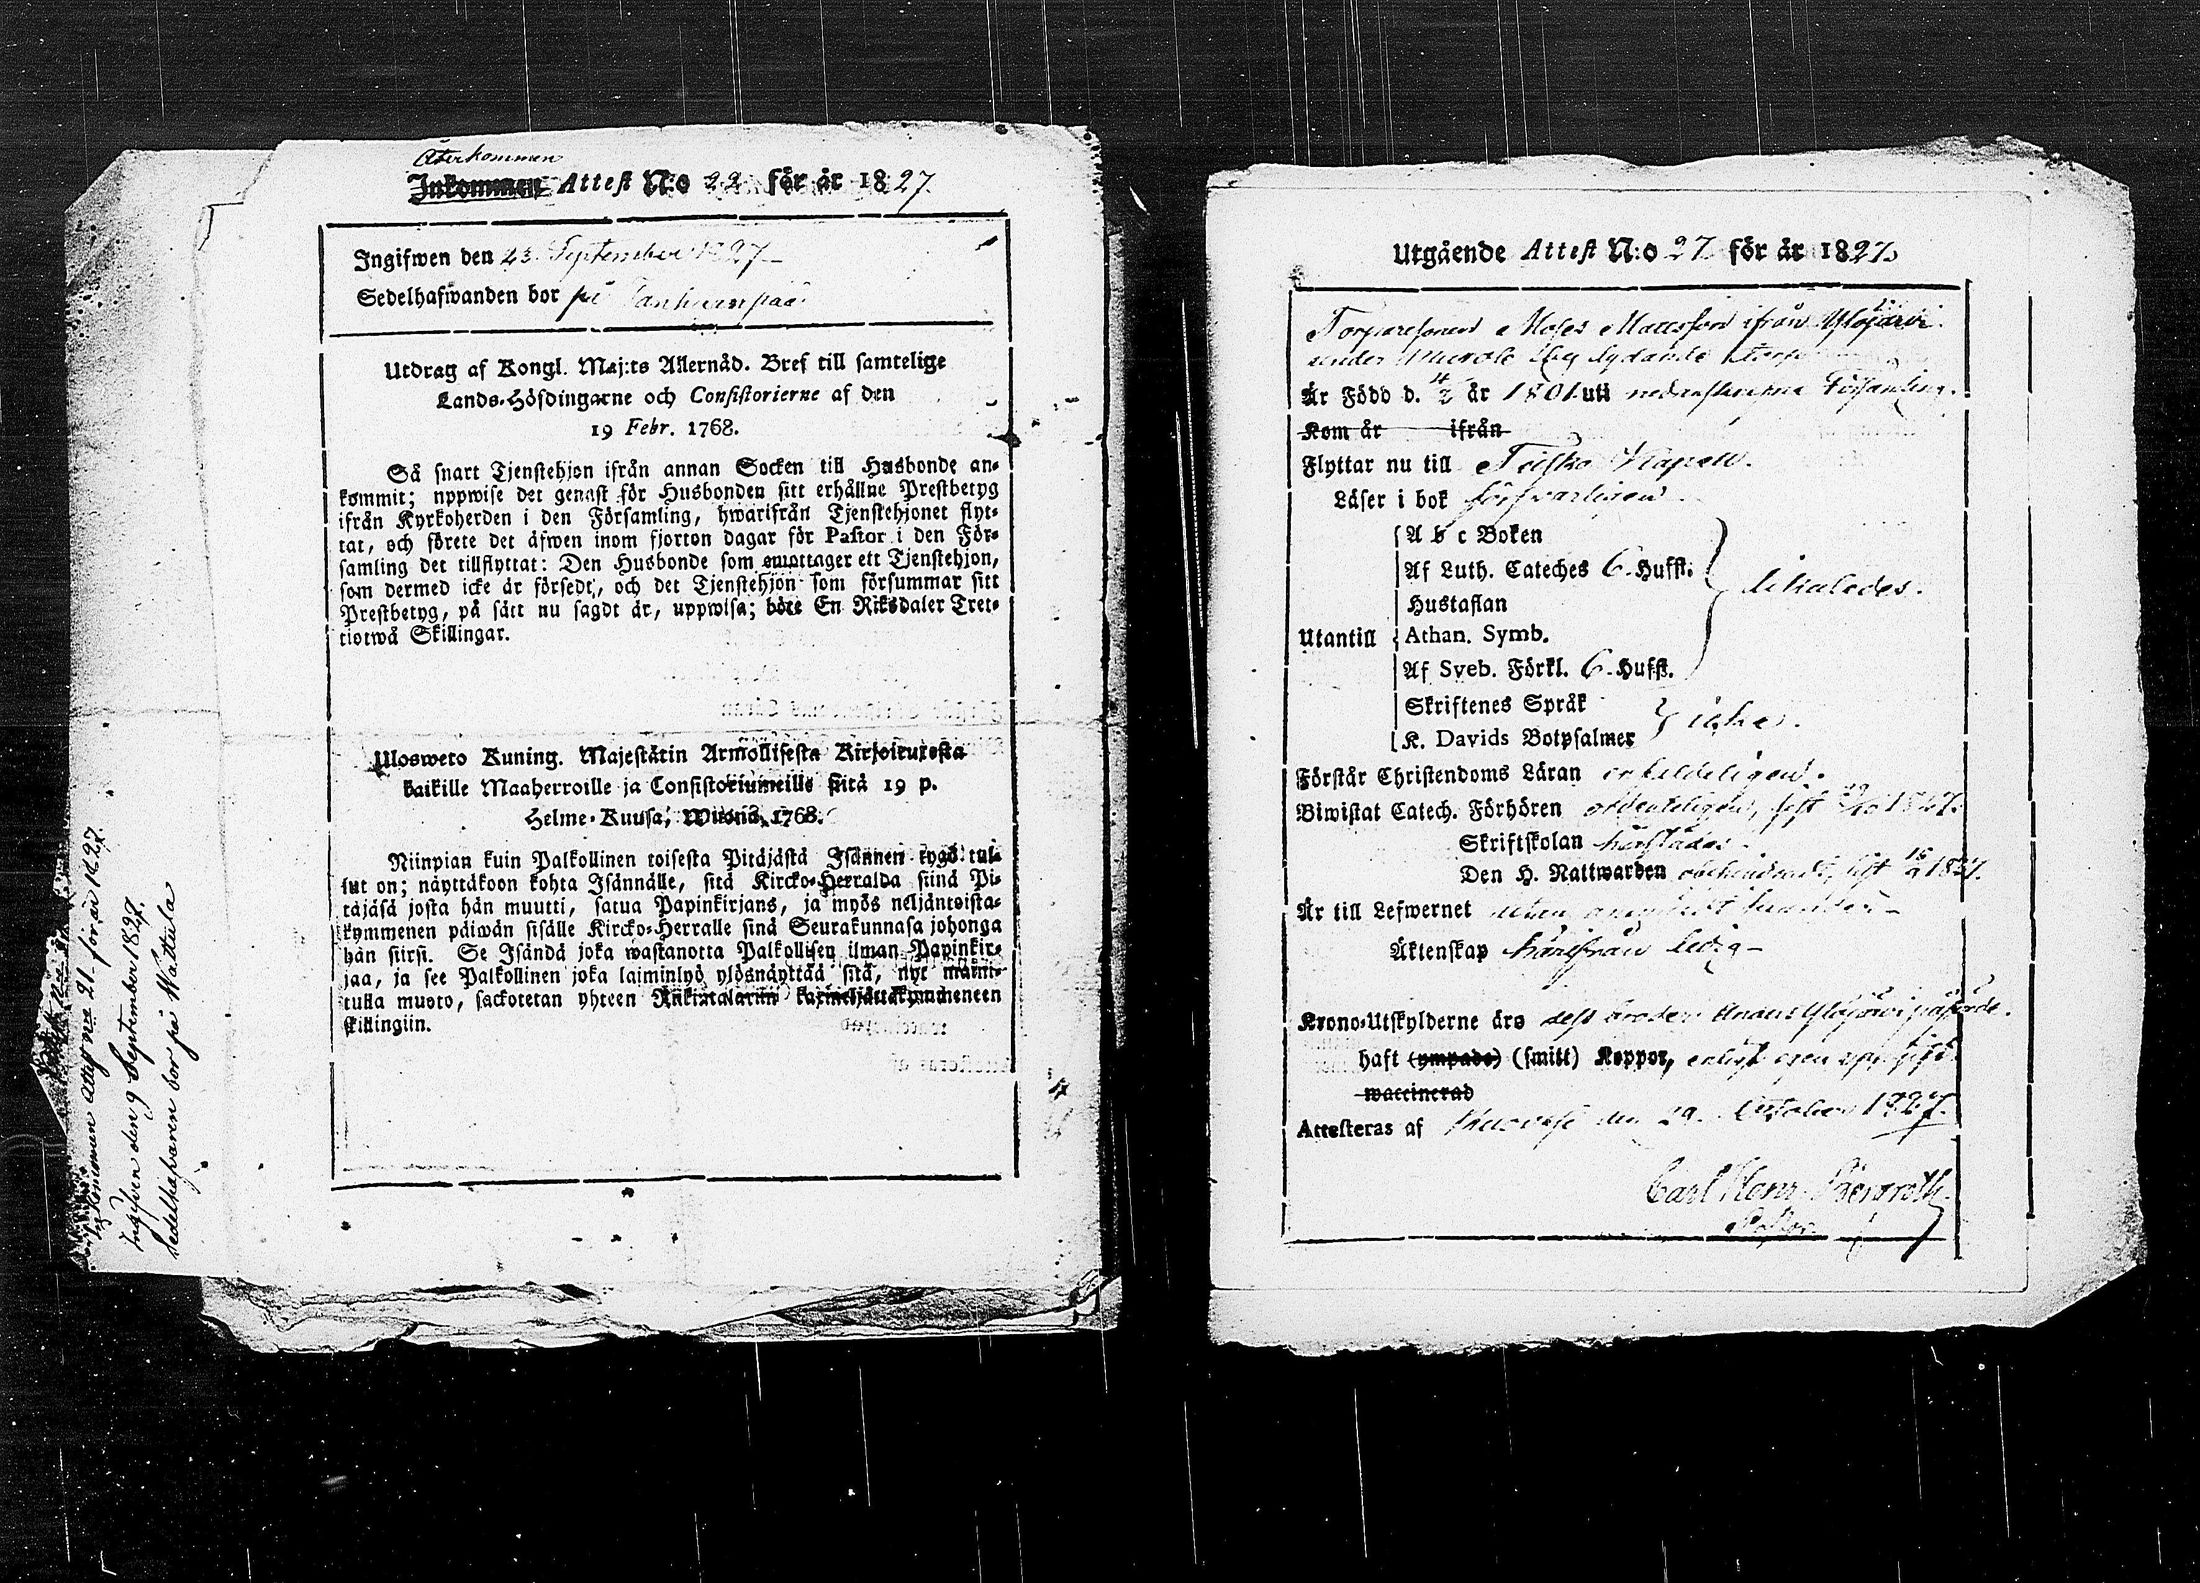 Återkommen
Inkommen Attest N:o 22 för år 1827.
Ingifwen den 23. September 1827
Sedelhafwanden bor på Tanhuanpää.
Utdrag af Kongl. Maj:ts Allernåd. Bref till samtelige
Lands-Höfdingarne och Consistorierne af den
19 Febr. 1768.
Så snart Tjenstehjon ifrån annan Socken till Husbonde an-
kommit; uppwise det genast för Husbonden sitt erhållne Prestbetyg
ifrån Kyrkoherden i den Församling, hwarifrån Tjenstehjonet flyt-
tat, och förete det äfwen inom fjorton dagar för Pastor i den För-
samling det tillflyttat: Den Husbonde som emottager ett Tjenstehjon,
som dermed icke är försedt, och det Tjenstehjon som försummar sitt
Prestbetyg, på sätt nu sagdt är, uppwisa; böte En Riksdaler Tret-
tiotwå Skillingar.
Ulosweto Kuning. Majestätin Armollisesta Kirjoituxesta
kaikille Maaherroille ja Consistoriumeille siitä 19 p.
Helme-Kuusa, Wuonna 1768.
Niinpian kuin Palkollinen toisesta Pitäjästä Isännen tygö tul-
lut on; näyttäkoon kohta Isännälle, sitä Kircko-Herralda siinä Pi-
täjäsä josta hän muutti, satua Papinkirjans, ja myös neljäntoista-
kymmenen päiwän sisälle Kircko-Herralle siinä Seurakunnasa johonga
hän siirsi. Se Isändä joka wastanotta Palkollisen ilman Papinkir-
jaa, ja see Palkollinen joka laiminlyö ylösnäyttää sitä, nyt mainit-
tulla muoto, sackotetan yhteen Rikintalariin kaxineljättäkymmeneen
skillingiin.
Inkommen Attest N:o 21 för år 1827.
Ingifven den 9 September 1827.
Sedelhafvaren bor på Wattula
Utgående Attest N:o 27 för år 1827.
Torparesonen Moses Mattsson ifrån Ylöjärvi
under Murole by lydande torp
Är Född d. 4/2 år 1801 uti nedanskrefne Församling.
Kom år ifrån
Flyttar nu till Teisko Kapell.
Läser i bok försvarligen.
Utantill
A b c Boken
Af Luth. Cateches 6. Hufst.
Hustaflan
Athan. Symb.
Af Sveb. Förkl. 6. Hufst.
likaledes.
Skriftenes Språk
K. Davids Botpsalmer
icke.
Förstår Christendoms Läran enfaldeligen.
Biwistat Catech. Förhören ordenteligen, sist 1827.
Skriftskolan härstädes.
Den H. Nattwarden obehindradt, sist 1827.
Är till Lefwernet utan anmärkt
Äktenskap härifrån ledig
Krono-Utskylderne äro dess broder Anders Ylöjärvi påförde.
haft (ympade) (smitt) Koppor, enligt egen uppgift.
waccinerad
Attesteras af Ruovesi den 29. October 1827.
Carl Henr. Bergroth
Pastor.